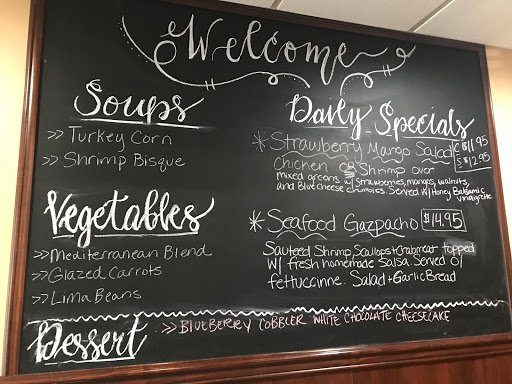 Welcome
Soups
>> Turkey Corn
>> Shrimp Bisque
Vegetables
>> Mediterranean Blend
>> Glazed Carrots
>> Lima Beans
Daily Specials
* Strawberry Mango Salad C $11.95
S $12.95
Chicken OR Shrimp over
mixed greens w/ strawberries, mangos, walnuts
and Blue cheese crumbles. Served w/ Honey Balsamic
vinaigrette
* Seafood Gazpacho $14.95
Sauteed Shrimp, Scallops + Crabmeat topped
w/ fresh homemade Salsa. Served o/
fettuccinne. Salad + Garlic Bread
Dessert >> BLUEBERRY COBBLER WHITE CHOCOLATE CHEESECAKE